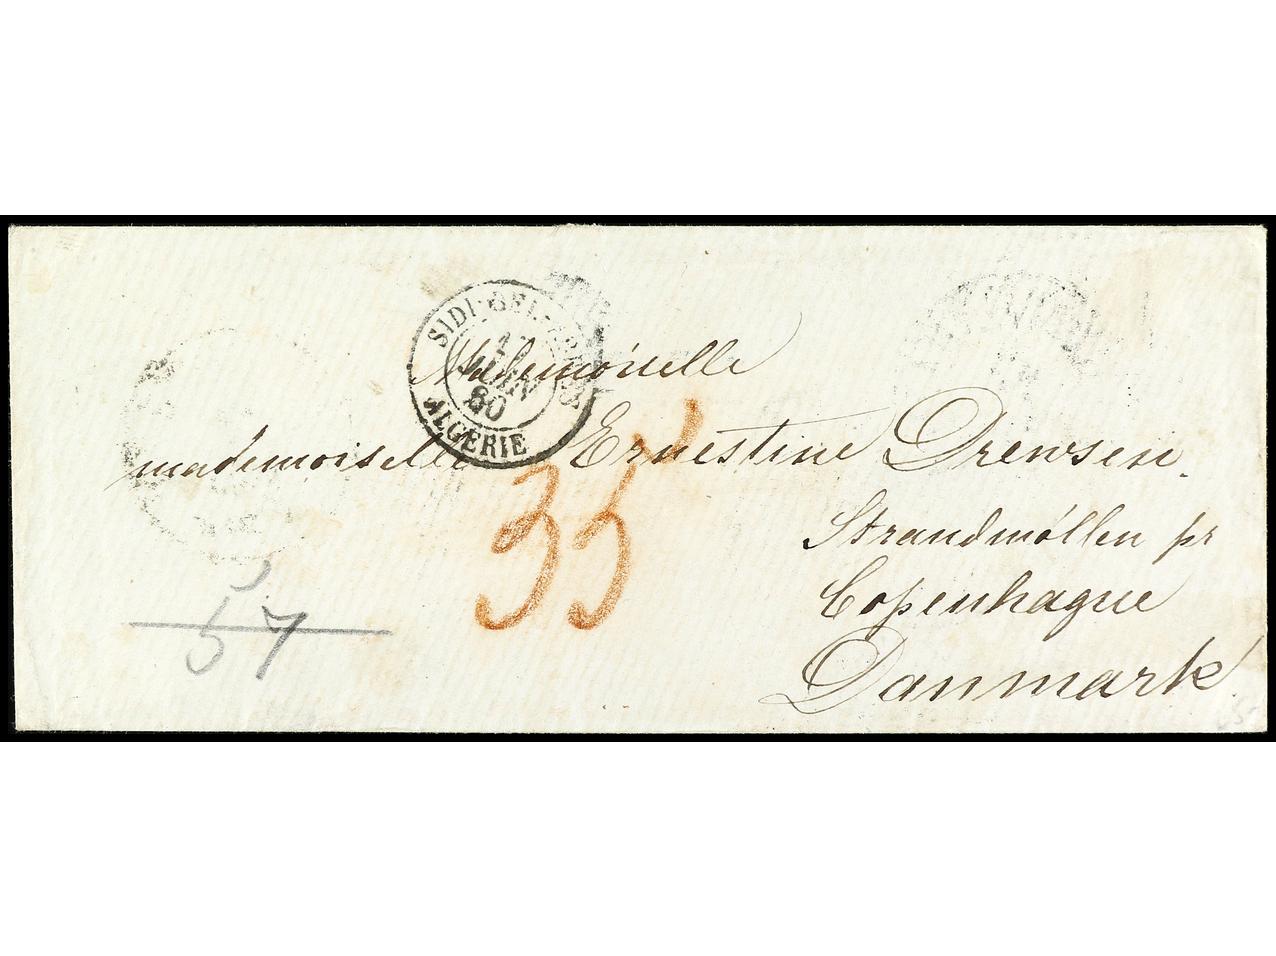 SIDI-BEL-ABBÈS
17
JUIN
60
ALGÉRIE
Mademoiselle
mademoiselle Ernestine Drewsen.
Strandmøllen pr
Copenhague
Danmark
35
57